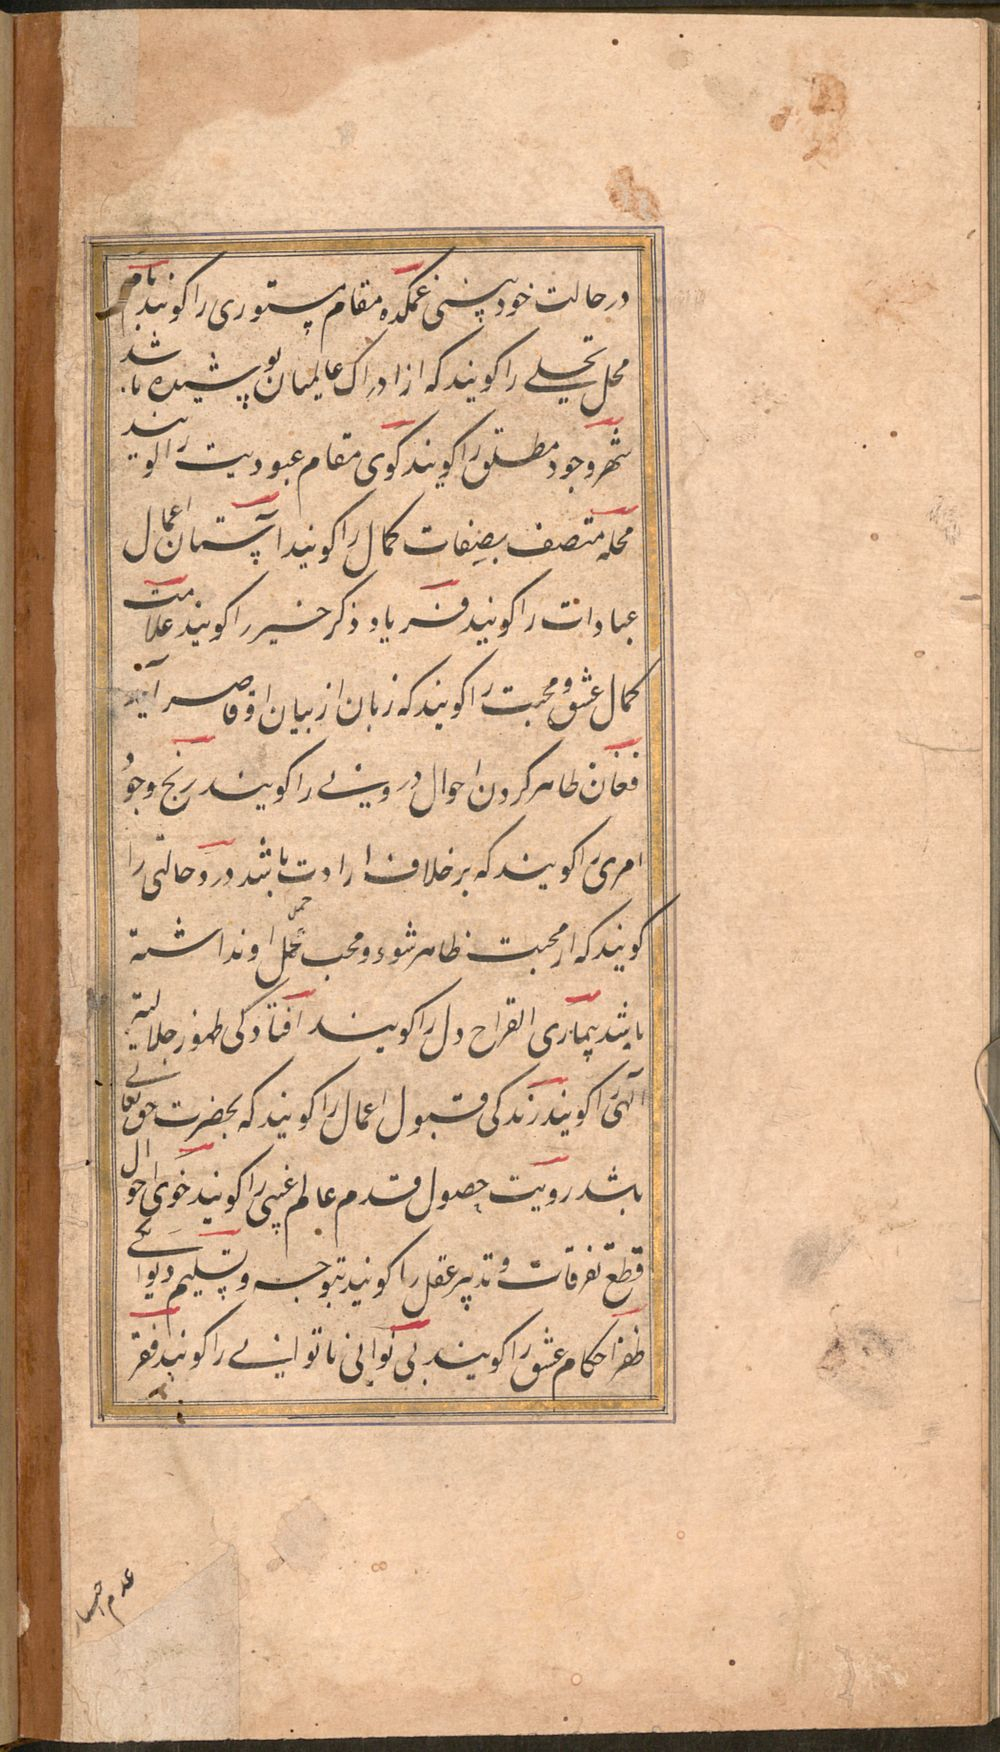 در حالت خود بینی غمکده مقام مستوری را کویند بام
محل تجلے را کویند که از ادراک عالمیان پوشیده باشد
شهر وجود مطلق را کویند کوی مقام عبودیت را کویند
محله متصف بصفات کمال را کویند آستان اعمال
عبادات را کویند فریاد ذکر خیر را کویند علامت
کمال عشق و محبت را کویند که زبان از بیان او قاصر آید
فغان ظاهر کردن احوال درونے را کویند رنج وجود
امری را کویند که بر خلاف ارادت باشد درد حالتی را
کویند که از محبت ظاهر شود و محب تحمل او نداشته
باشد بیماری القراح دل را کویند افتادکی ظهور جلالیة
الهی را کویند زندکی قبول اعمال را کویند که بحضرت حق تعالے
باشد رویت حصول قدم عالم غیبی را کویند خوی احوال
قطع تفرقات و تدبیر عقل را کویند بتوجه و تسلیم دیوانکے
ظفر احکام عشق را کویند بی نوائی ناتوانے را کویند فقر
عدم اختیار